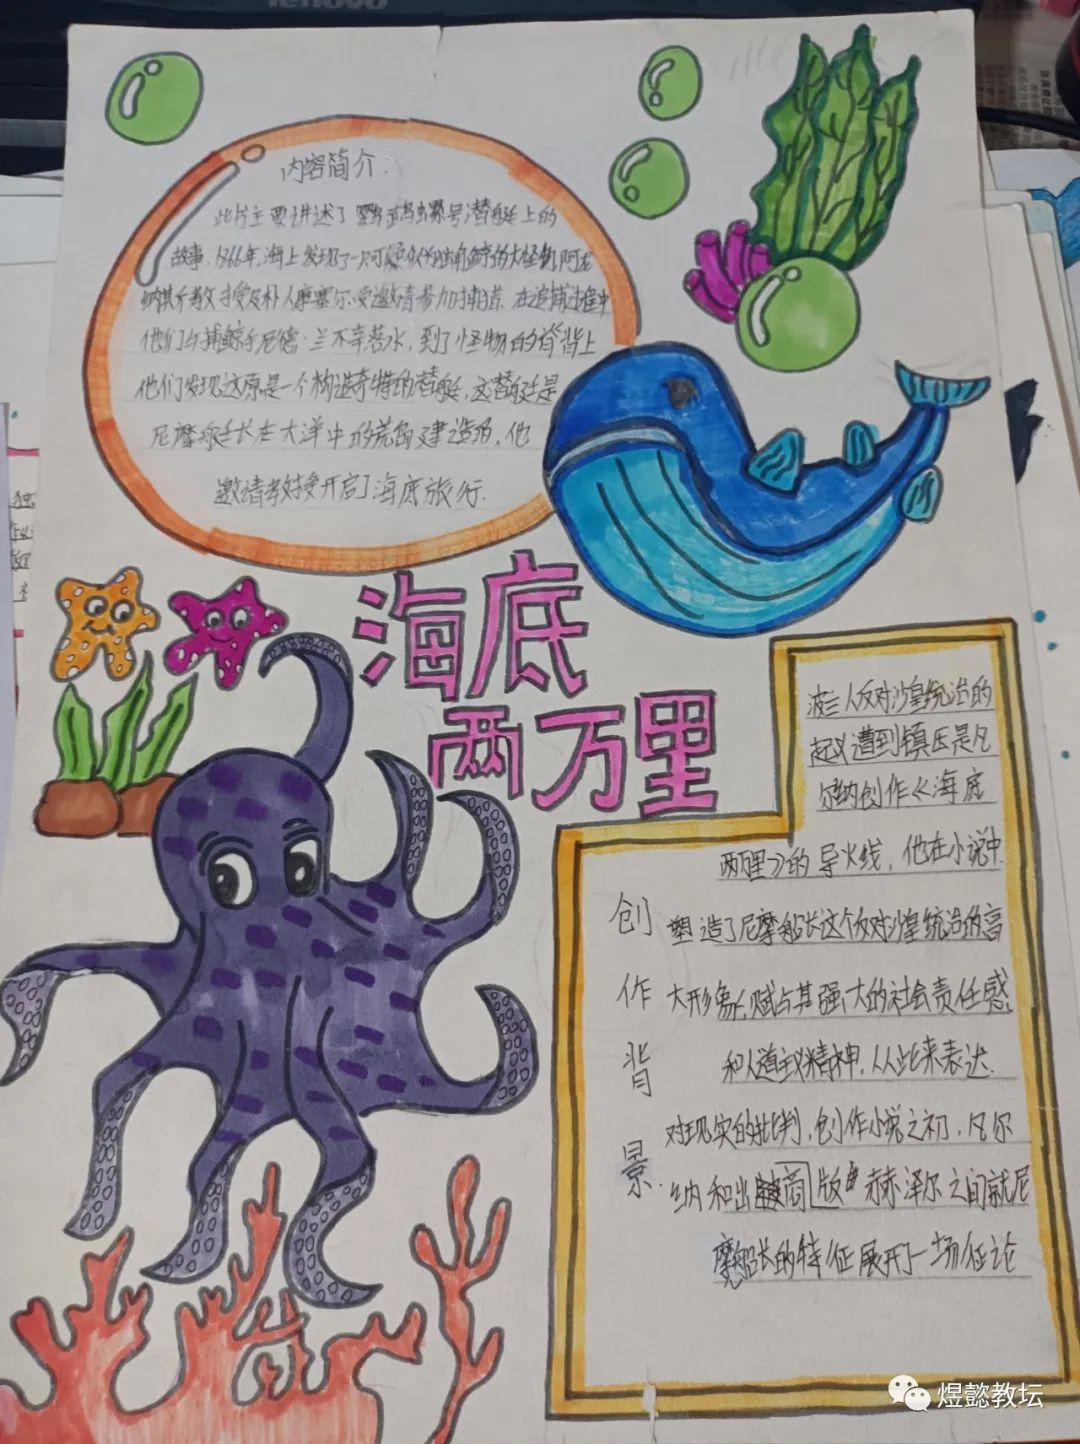 lenovo
内容简介.
此书主要讲述了鹦鹉螺号潜艇上的
故事.1866年,海上发现了一只疑似为独角鲸的大怪物,阿龙
纳斯教授及仆人康塞尔受邀请参加捕.在追捕过程中
他们与捕鲸手尼德·兰不幸落水,到了怪物的脊背上
他们发现这原是一个构造奇特的潜艇.这潜艇是
尼摩船长在大洋中的荒岛建造的,他
邀请教授开启了海底旅行.
海底
两万里
创作背景.
波兰人反对沙皇统治的
起义遭到镇压是凡
尔纳创作《海底
两万里》的导火线,他在小说中
塑造了尼摩船长这个反对沙皇统治的高
大形象,赋与其强大的社会责任感,
和人道主义精神,从此来表达
对现实的批判,创作小说之初,凡尔
纳和出版商赫泽尔之间就尼
摩船长的特征展开了一场征论
煜懿教坛